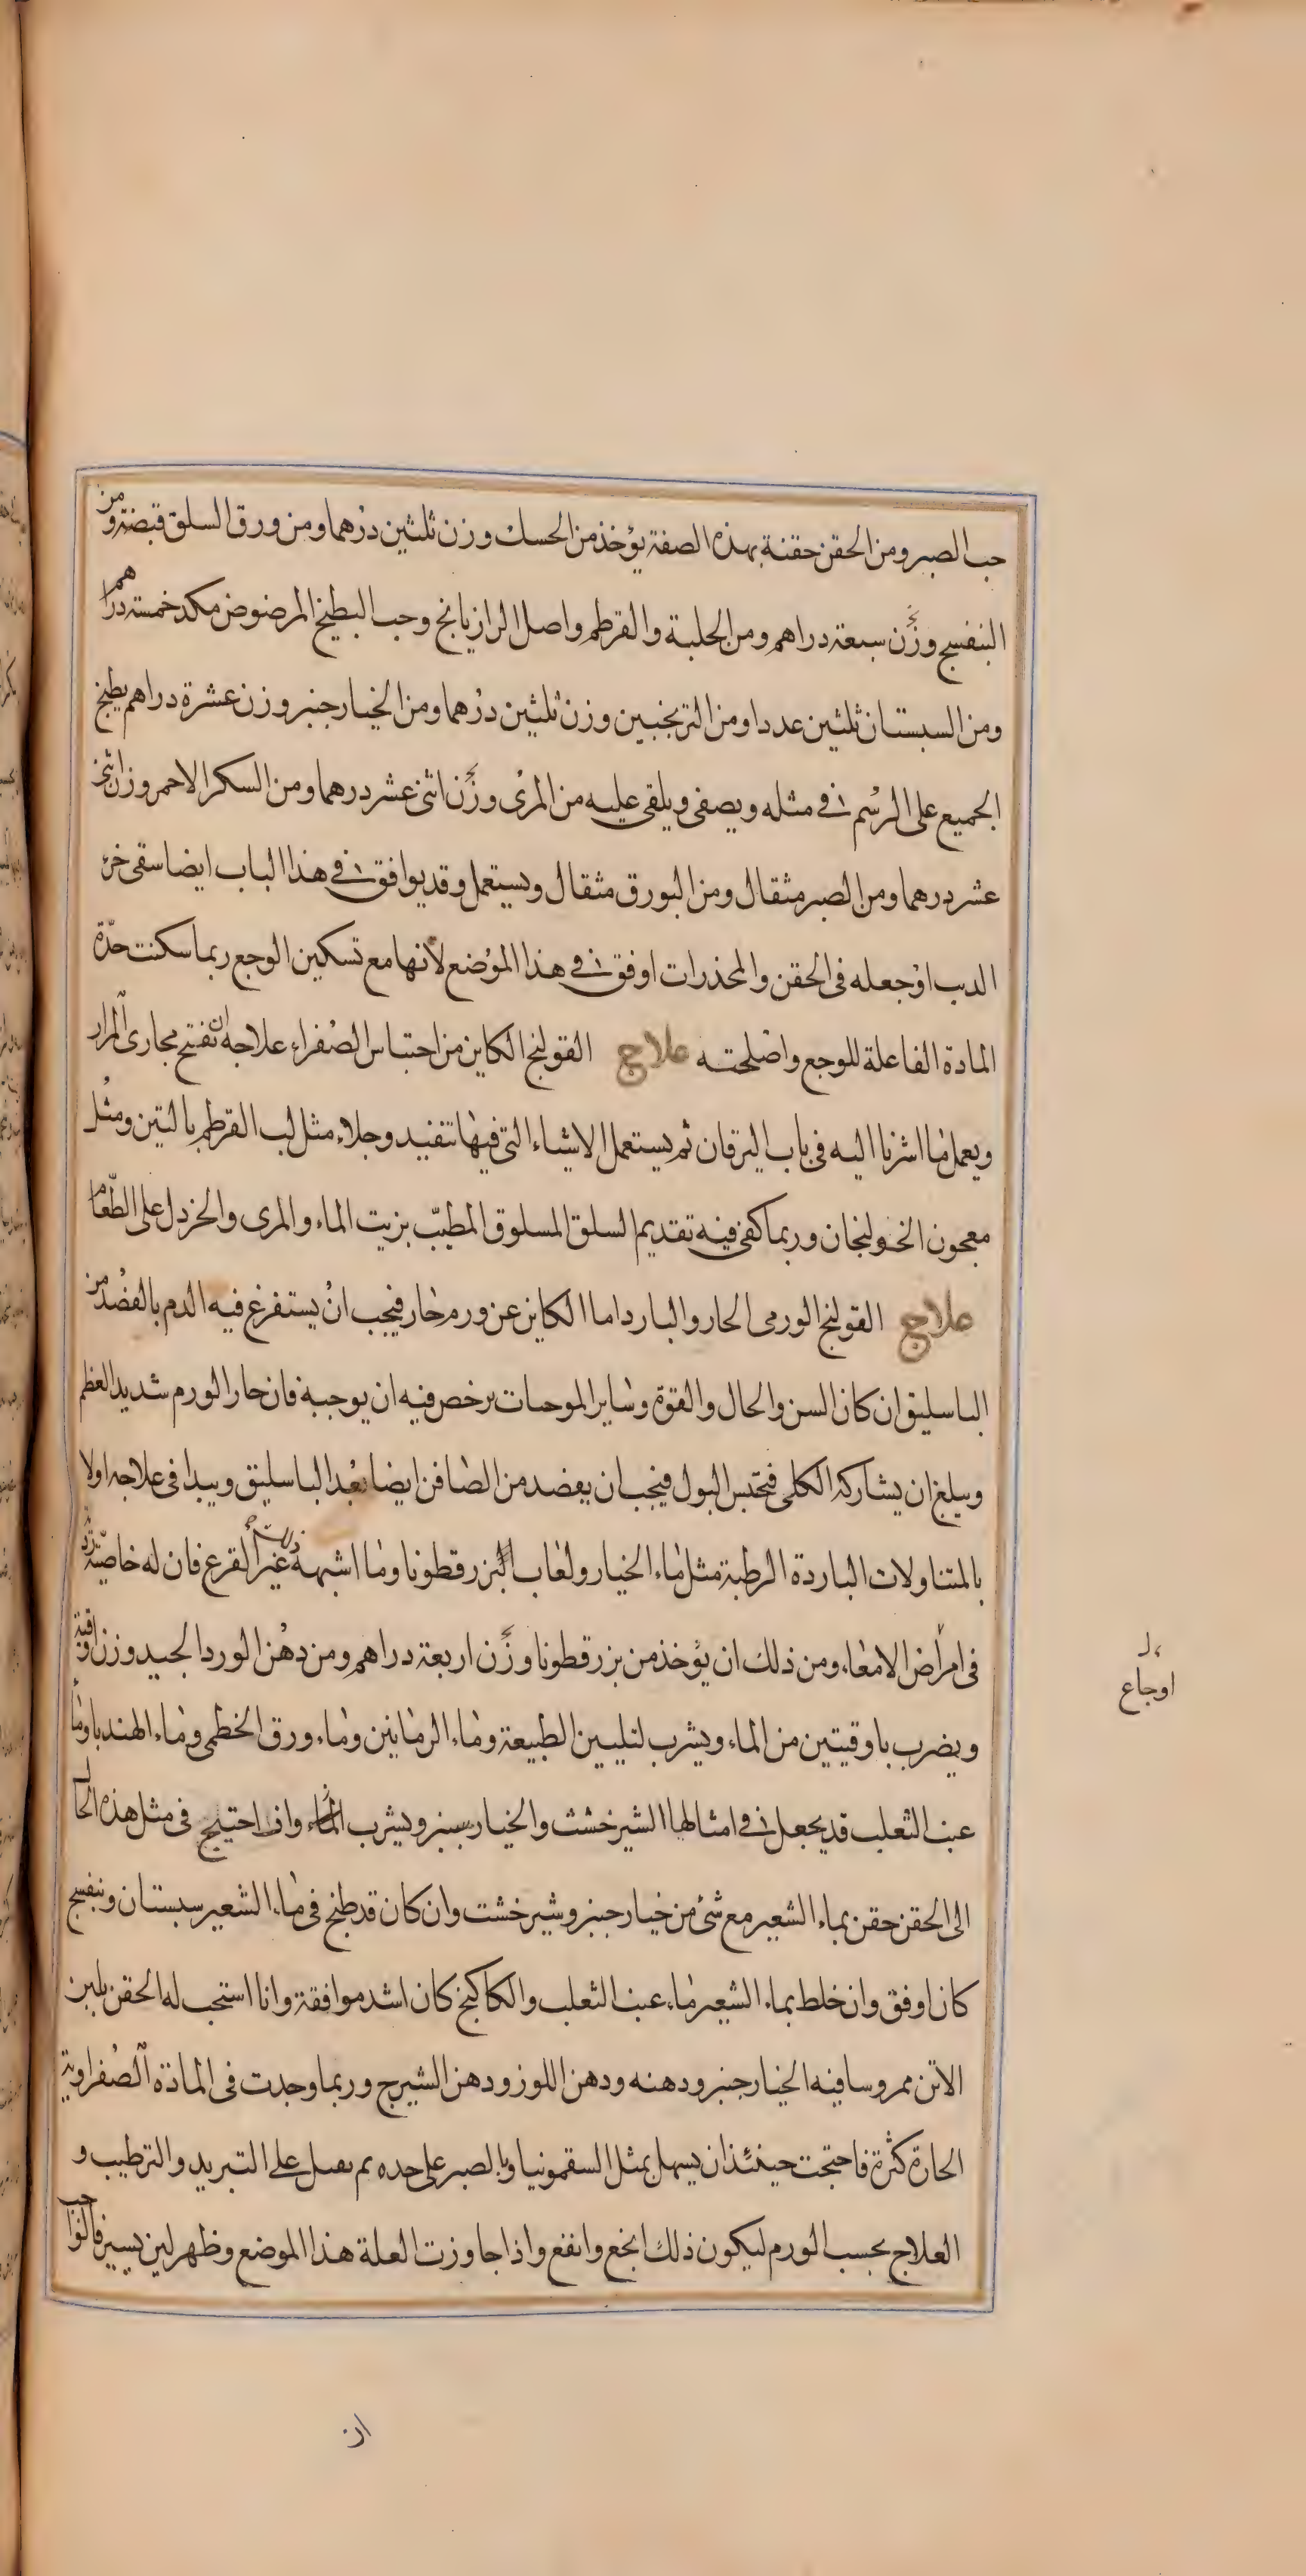 حب الصبر ومن الحقن حقنة بهذه الصفة يؤخذ من الحسك وزن ثلثين درهما ومن ورق السلق قبضة ومن
البنفسج وزن سبعة دراهم ومن الحلبة والقرطم واصل الرازيانج وحب البطيخ المرضوض مكد خمسة دراهم
ومن السبستان ثلثين عددا ومن الترنجبين وزن ثلثين درهما ومن الخيار جنبر وزن عشرة دراهم يطبخ
الجميع على الرسم في مثله ويصفى ويلقى عليه من المرى وزن اثنى عشر درهما ومن السكر الاحمر وزن اثنى
عشر درهما ومن الصبر مثقال ومن البورق مثقال ويستعمل وقد يوافق في هذا الباب ايضا سقى خرء
الديب او جعله فى الحقن والمخذرات اوفق في هذا الموضع لانها مع تسكين الوجع ربما سكنت حدّة
المادة الفاعلة للوجع واصلحته علاج القولنج الكاين من احتباس الصفراء علاجه ان تفتح مجارى المرار
ويعمل ما اشرنا اليه فى باب اليرقان ثم يستعمل الاشياء التى فيها تنفيد وجلاء مثل لب القرطم بالتين ومثل
معجون الخولنجان وربما كفى فيه تقديم السلق المسلوق المطيّب بزيت الماء والمرى والخردل على الطّعام
علاج القولنج الورمى الحار والبارد اما الكاين عن ورم حار فيجب ان يستفرغ فيه الدم بالفصد من
الباسليق ان كان السن والحال والقوة وساير الموجبات يرخص فيه ان يوجبه فان حار الورم شديد العظم
ويبلغ ان يشاركه الكلى فتحتبس البول فيجب ان يفصد من الصافن ايضا بعد الباسليق ويبدا فى علاجه اولا
بالمتناولات الباردة الرطبة مثل ماء الخيار ولعاب البزرقطونا وما اشبهه غير القرع فان له خاصيّة
فى امراض الامعاء ومن ذلك ان يؤخذ من بزرقطونا وزن اربعة دراهم ومن دهن الورد الجيد وزن اوقية
ويضرب باوقيتين من الماء ويشرب لتليين الطبيعة وماء الرمانين وماء ورق الخطمى وماء الهندبا وماء
عنب الثعلب قد يجعل في امثالها الشيرخشت والخيار سنبر ويشرب الماء وان احتيج فى مثل هذه الحال
الى الحقن حقن بماء الشعير مع شئ من خيار جنبر وشيرخشت وان كان قد طبخ فى ماء الشعير سبستان وبنفسج
كان اوفق وان خلط بماء الشعير ماء عنب الثعلب والكاكنج كان اشد موافقة وانا استحب له الحقن بلبن
الاتن ممروسا فيه الخيار جنبر ودهنه ودهن اللوز ودهن الشيرج وربما وجدت فى المادة الصفراوية
الحارة كثرة فاحتجت حينئذ ان يسهل بمثل السقمونيا وبالصبر على حده ثم يقبل على التبريد والترطيب و
العلاج بحسب الورم ليكون ذلك انجع وانفع واذا جاوزت العلة هذا الموضع وظهر لين يسير فالواجب
اوجاع
ان